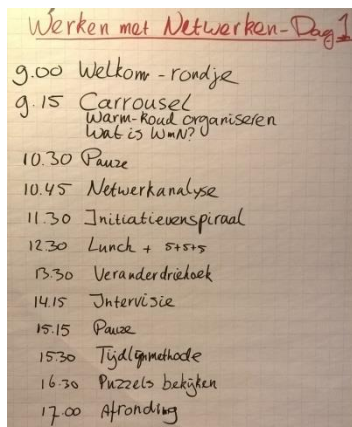 Werken met Netwerken - Dag 1
9.00 Welkom - rondje
9.15 Carrousel
Warm-koud organiseren
Wat is WmN?
10.30 Pauze
10.45 Netwerkanalyse
11.30 Initiatievenspiraal
12.30 Lunch + 5+5+5
13.30 Veranderdriehoek
14.15 Intervisie
15.15 Pauze
15.30 Tijdlijnmethode
16.30 Puzzels bekijken
17.00 Afronding